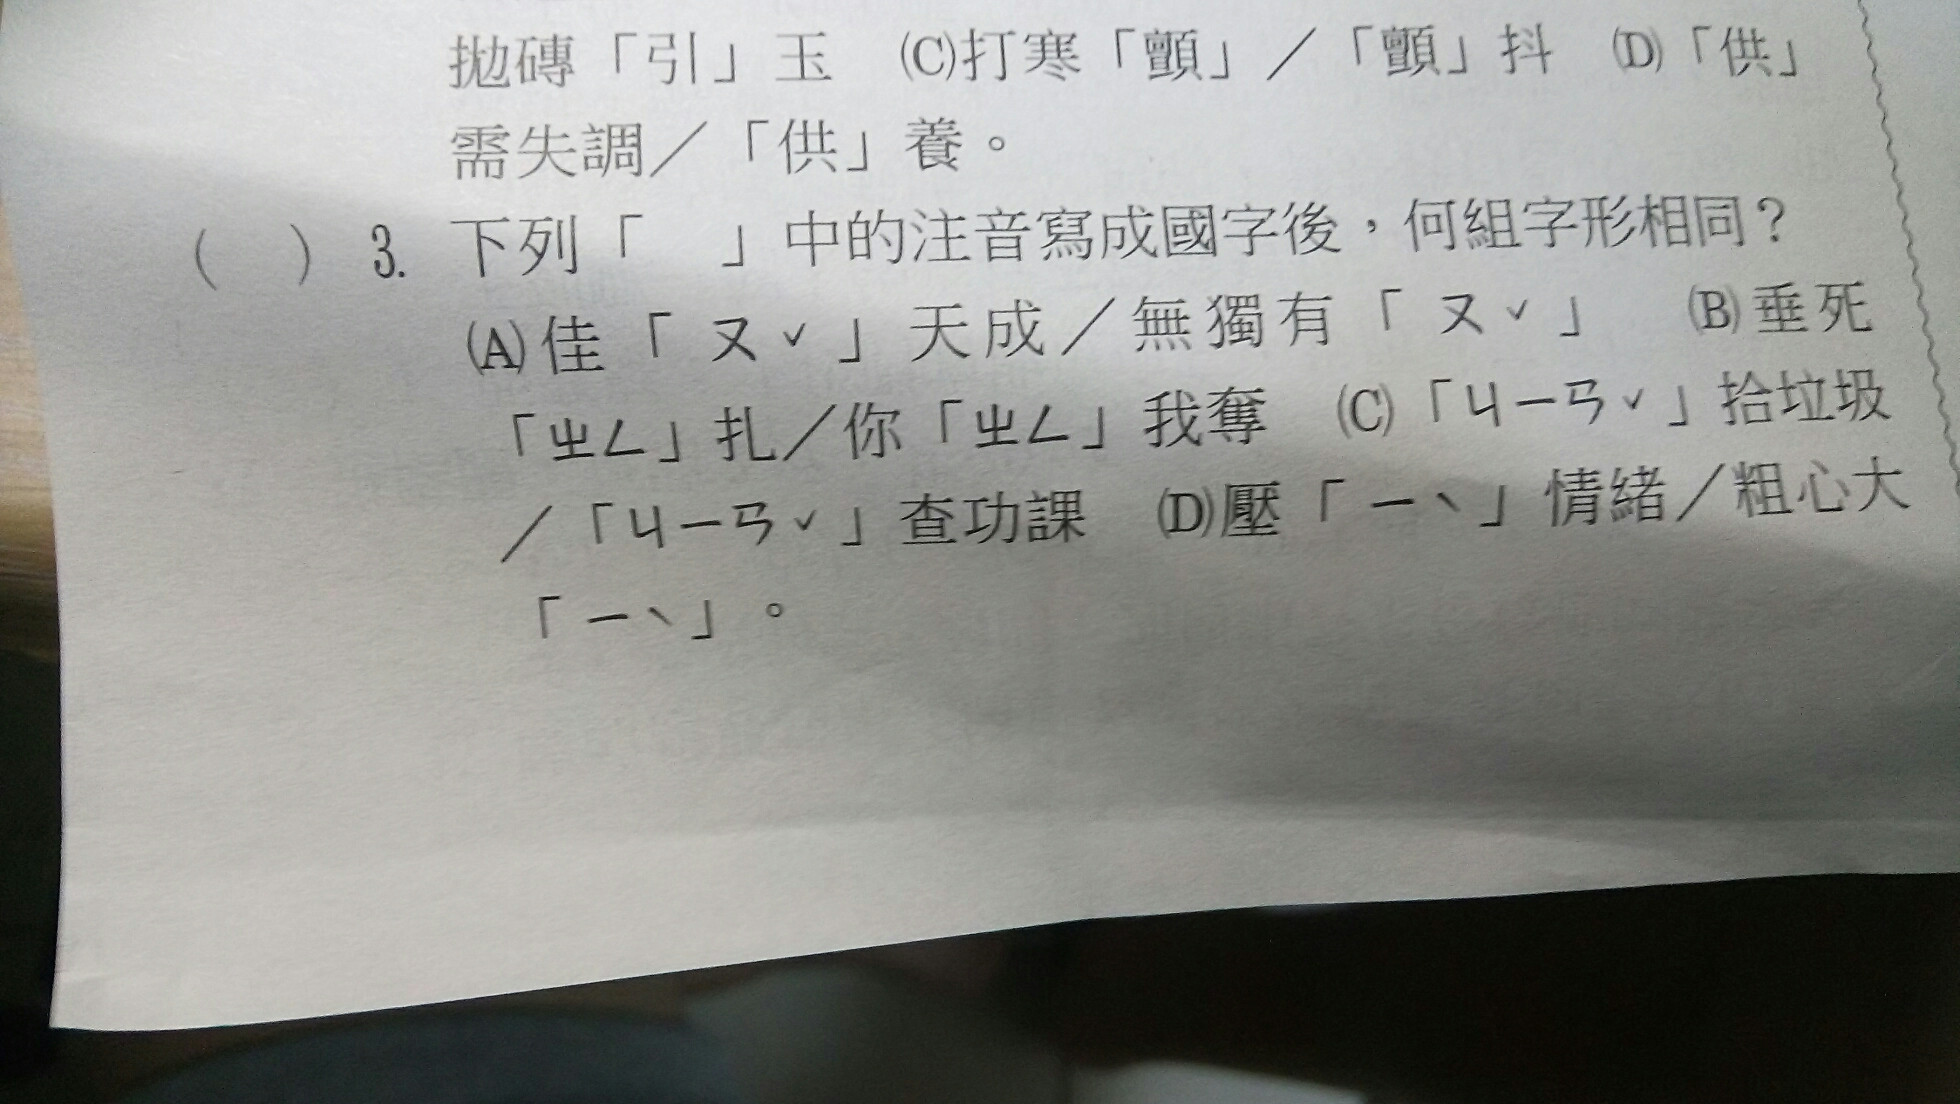 拋磚「引」玉　(C)打寒「顫」／「顫」抖　(D)「供」
需失調／「供」養。
(　) 3. 下列「　」中的注音寫成國字後，何組字形相同？
(A)佳「ㄡˇ」天成／無獨有「ㄡˇ」　(B)垂死
「ㄓㄥ」扎／你「ㄓㄥ」我奪　(C)「ㄐㄧㄢˇ」拾垃圾
／「ㄐㄧㄢˇ」查功課　(D)壓「ㄧˋ」情緒／粗心大
「ㄧˋ」。